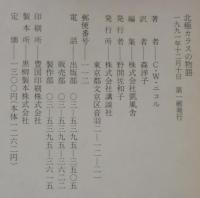 北極カラスの物語
一九九一年十二月十日　第一刷発行
著者　C・W・ニコル
訳者　森洋子
編集　株式会社凱風舎
発行者　野間佐和子
発行所　株式会社講談社
東京都文京区音羽二-一二-二一
郵便番号一一二-〇一
電話　出版部　〇三-五三九五-三五〇五
販売部　〇三-五三九五-三六二二
製作部　〇三-五三九五-三六一五
印刷所　豊国印刷株式会社
製本所　黒柳製本株式会社
定価　一三〇〇円(本体一二六二円)